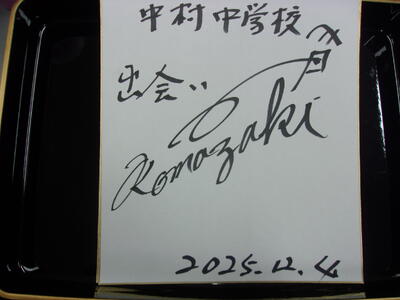 中村中学校
出会い
Komazaki
2025.12.4